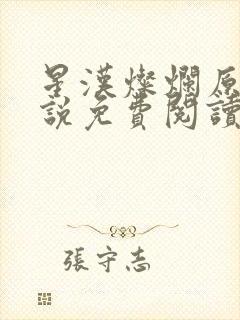 星漢燦爛原
說免費閱讀
張守志